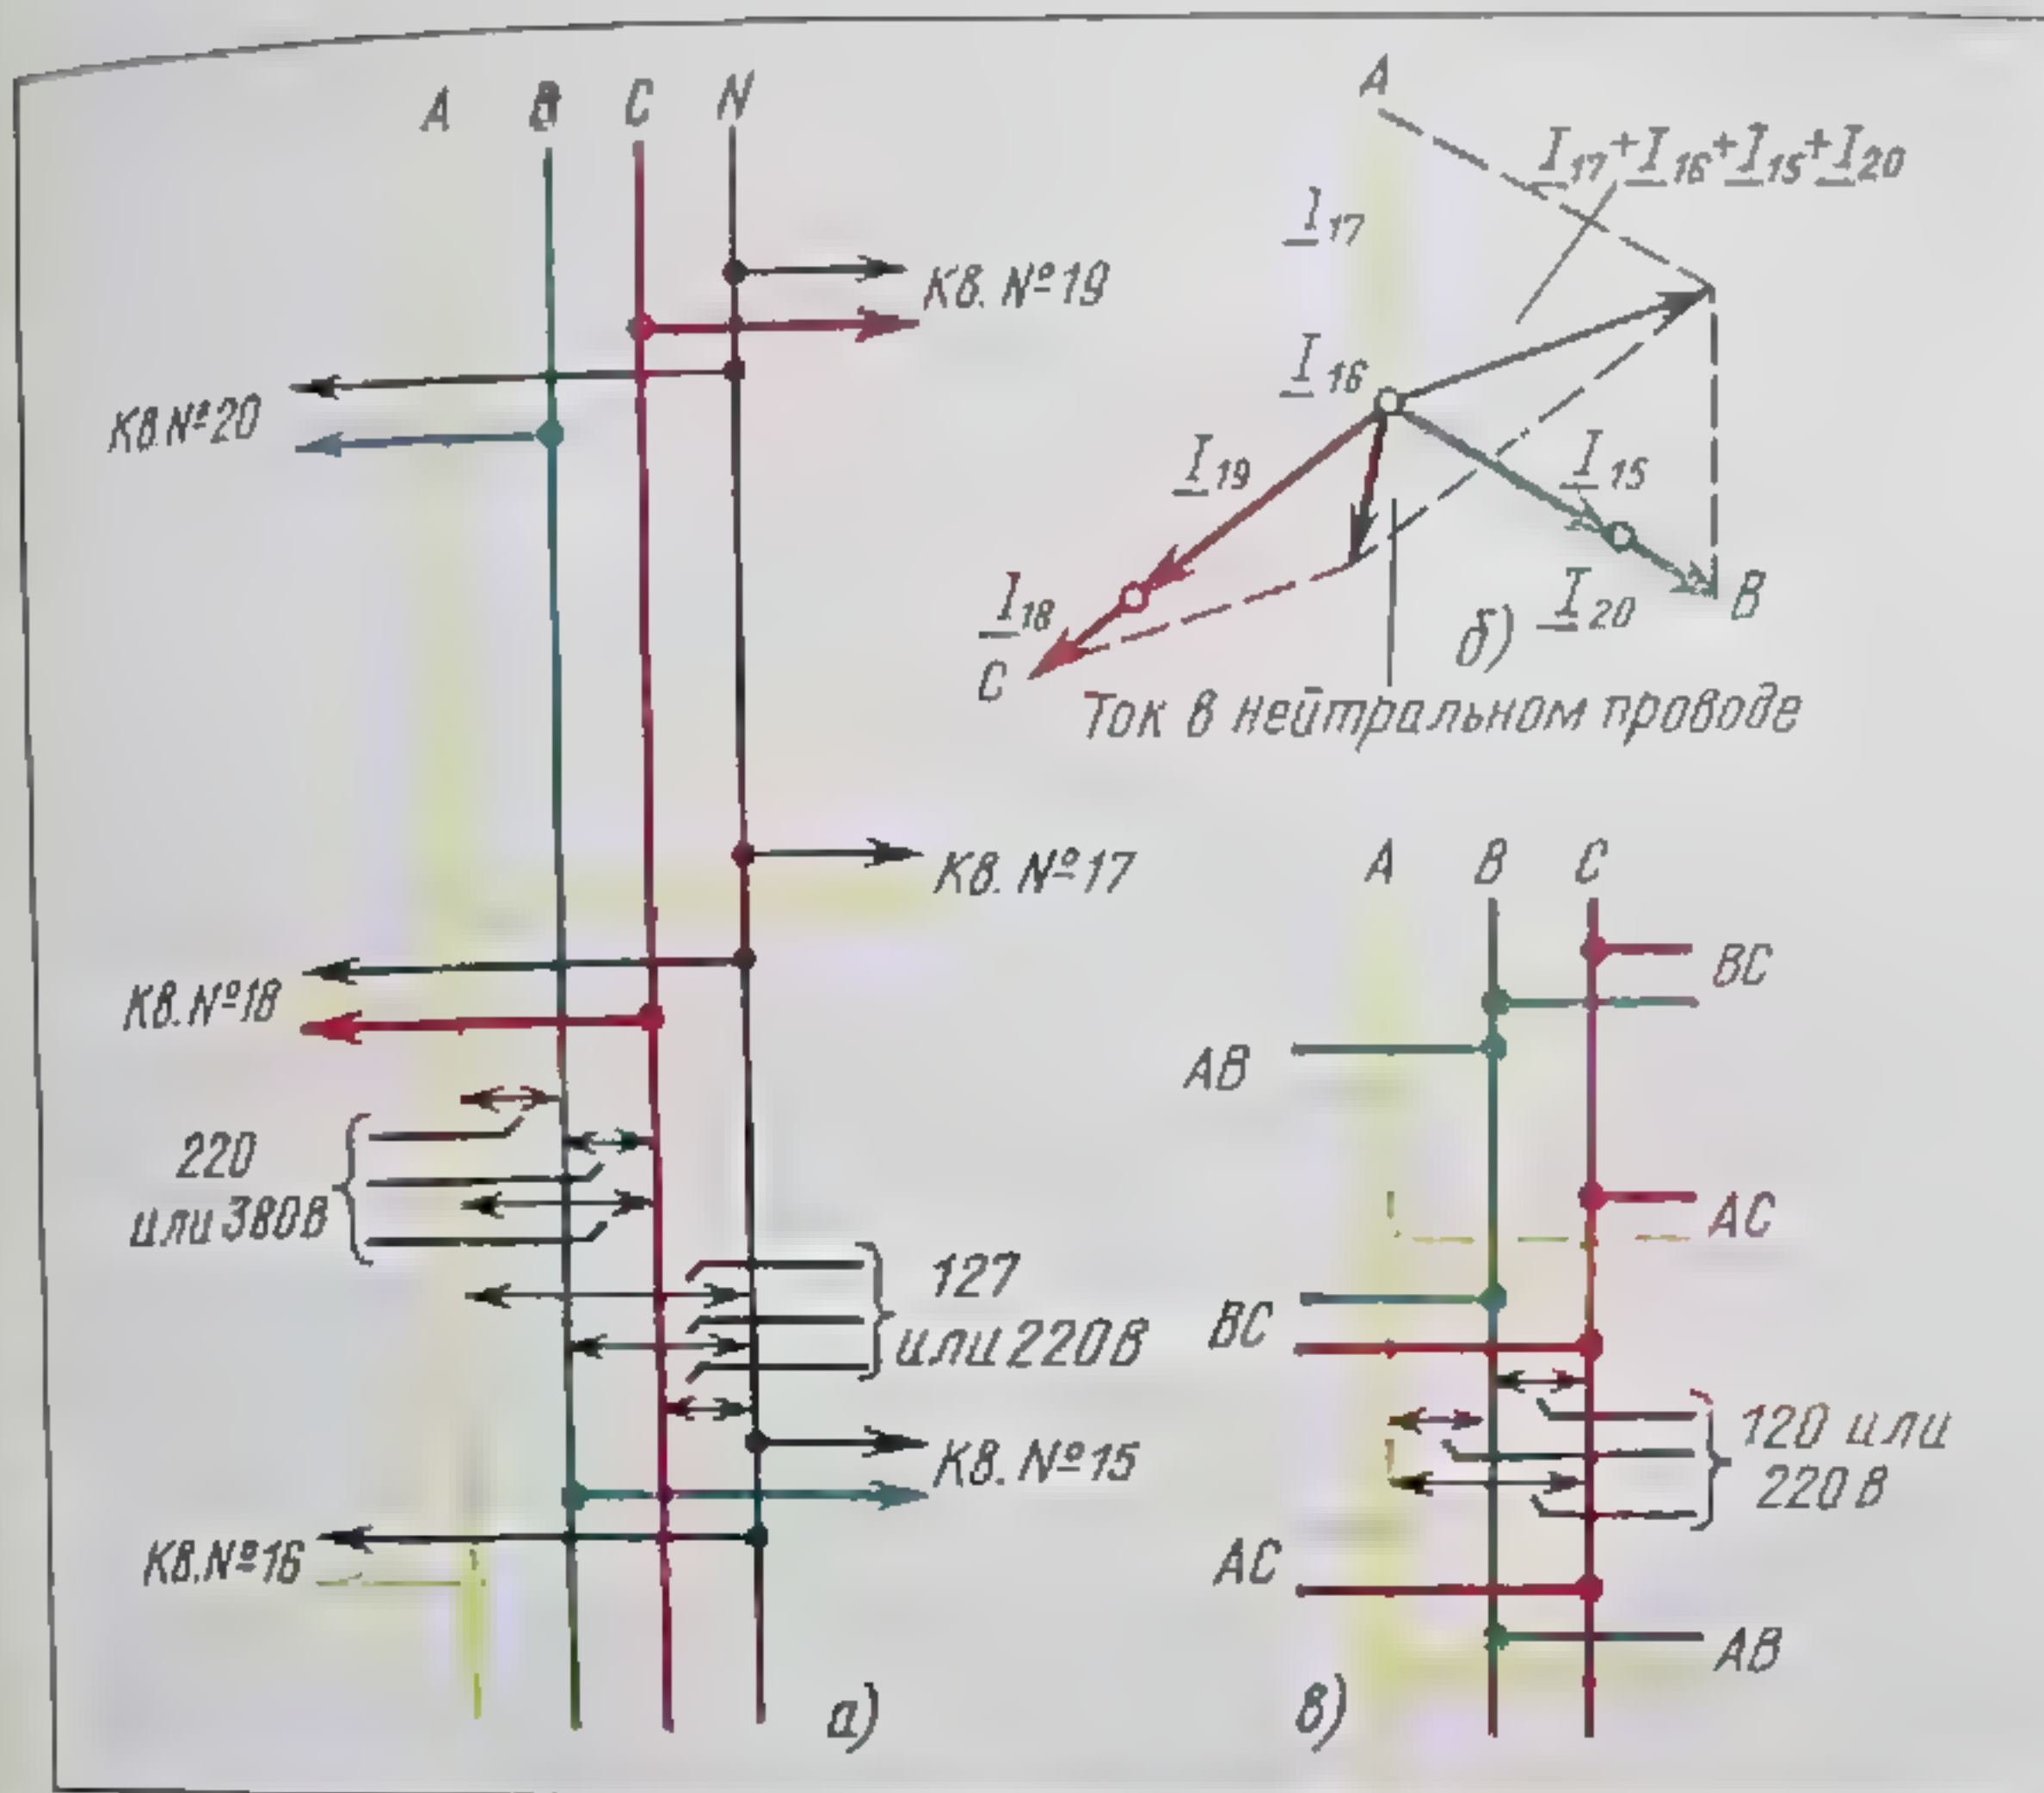 A В C N
Кв. №19
Кв. №20
Кв. №17
Кв. №18
220
или 380В
127
или 220В
Кв. №15
Кв. №16
а)
A
I17+I16+I15+I20
I17
I16
I19
I15
I18
I20
B
C
б)
Ток в нейтральном проводе
A B C
BC
AB
AC
BC
120 или
220 В
AC
AB
в)